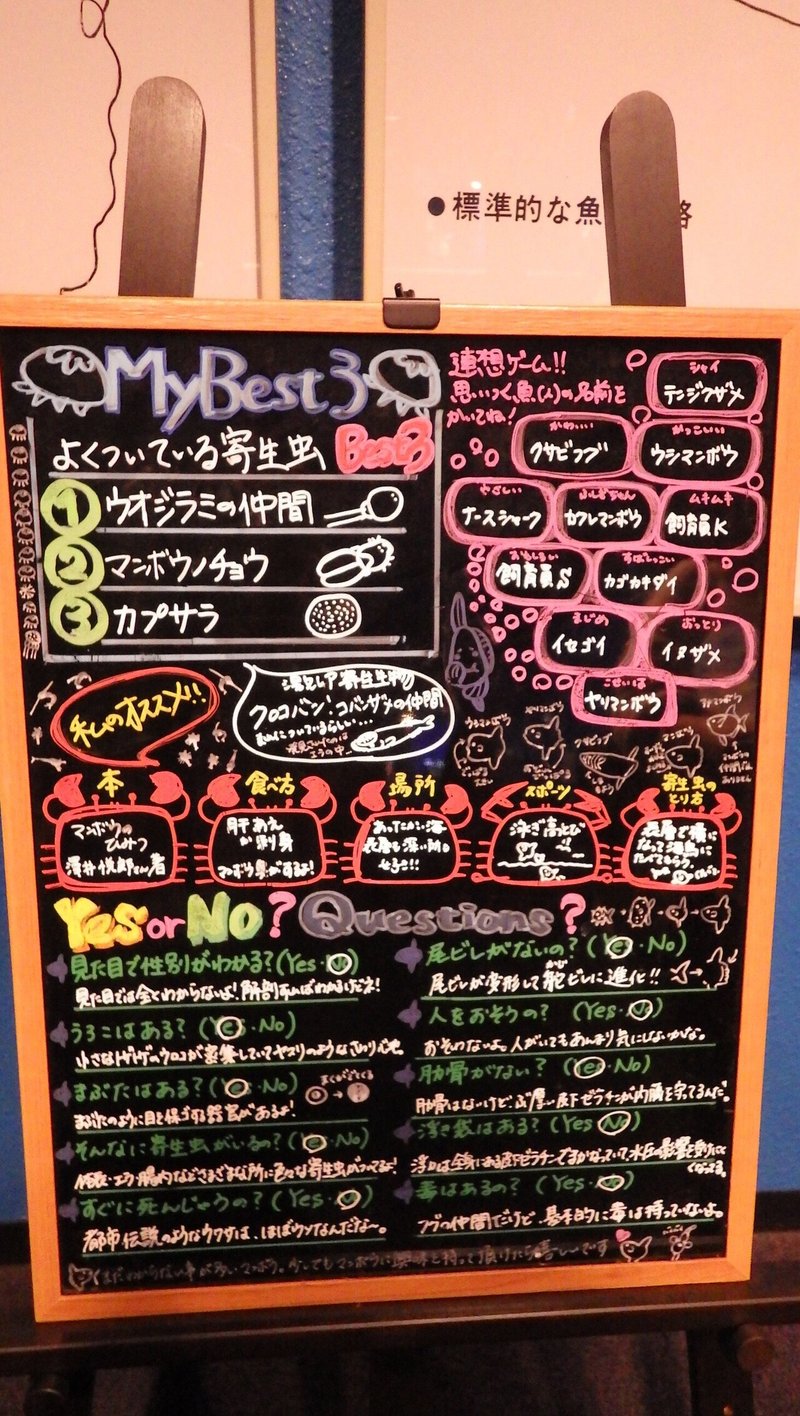 ●標準的な魚
My Best 3
よくついている寄生虫 Best3
① ウオジラミの仲間
② マンボウノチョウ
③ カプサラ
連想ゲーム!!
思いつく魚(人)の名前を
かいてね!
シャイ
テンジクザメ
かわいい
クサビフグ
かっこいい
ウシマンボウ
やさしい
ナースシャーク
ふしぎちゃん
カクレマンボウ
ムキムキ
飼育員K
おもしろい
飼育員S
すばしっこい
カゴカキダイ
まじめ
イセゴイ
おっとり
イヌザメ
こせいは
ヤリマンボウ
私のオススメ!!
寄生生物
クロコバン!コバンザメの仲間
エラの中
クサビフグ
本
マンボウの
ひみつ
澤井悦郎 著
食べ方
肝あえ
か刺身
場所
あったかい海
スポーツ
泳ぎ高とび
寄生虫の
とり方
表層で横に
なって海鳥に
たべてもらう。
Yes or No? Questions?
見た目で性別がわかる?(Yes・No)
見た目では全くわからないよ!解剖すればわかるけどネ!
うろこはある?(Yes・No)
小さなトゲトゲのウロコが密集していてヤスリのようなさわり心地。
まぶたはある?(Yes・No)
まぶたのように目を保護する器官があるよ!
そんなに寄生虫がいるの?(Yes・No)
体表・エラ・腸内などさまざまな所に色々な寄生虫がついてるよ!
すぐに死んじゃうの?(Yes・No)
都市伝説のようなウワサは、ほぼウソなんだな〜。
尾ビレがないの?(Yes・No)
尾ビレが変形して舵ビレに進化!!
人をおそうの?(Yes・No)
おそわないよ。人がいてもあんまり気にしないかな。
肋骨がない?(Yes・No)
肋骨はないけど、ぶ厚い皮下ゼラチンが内臓を守ってるんだ。
浮き袋はある?(Yes・No)
毒はあるの?(Yes・No)
フグの仲間だけど、基本的に毒は持っていないよ。
まだわからない事が多いマンボウ。少しでもマンボウに興味を持って頂けたら嬉しいです